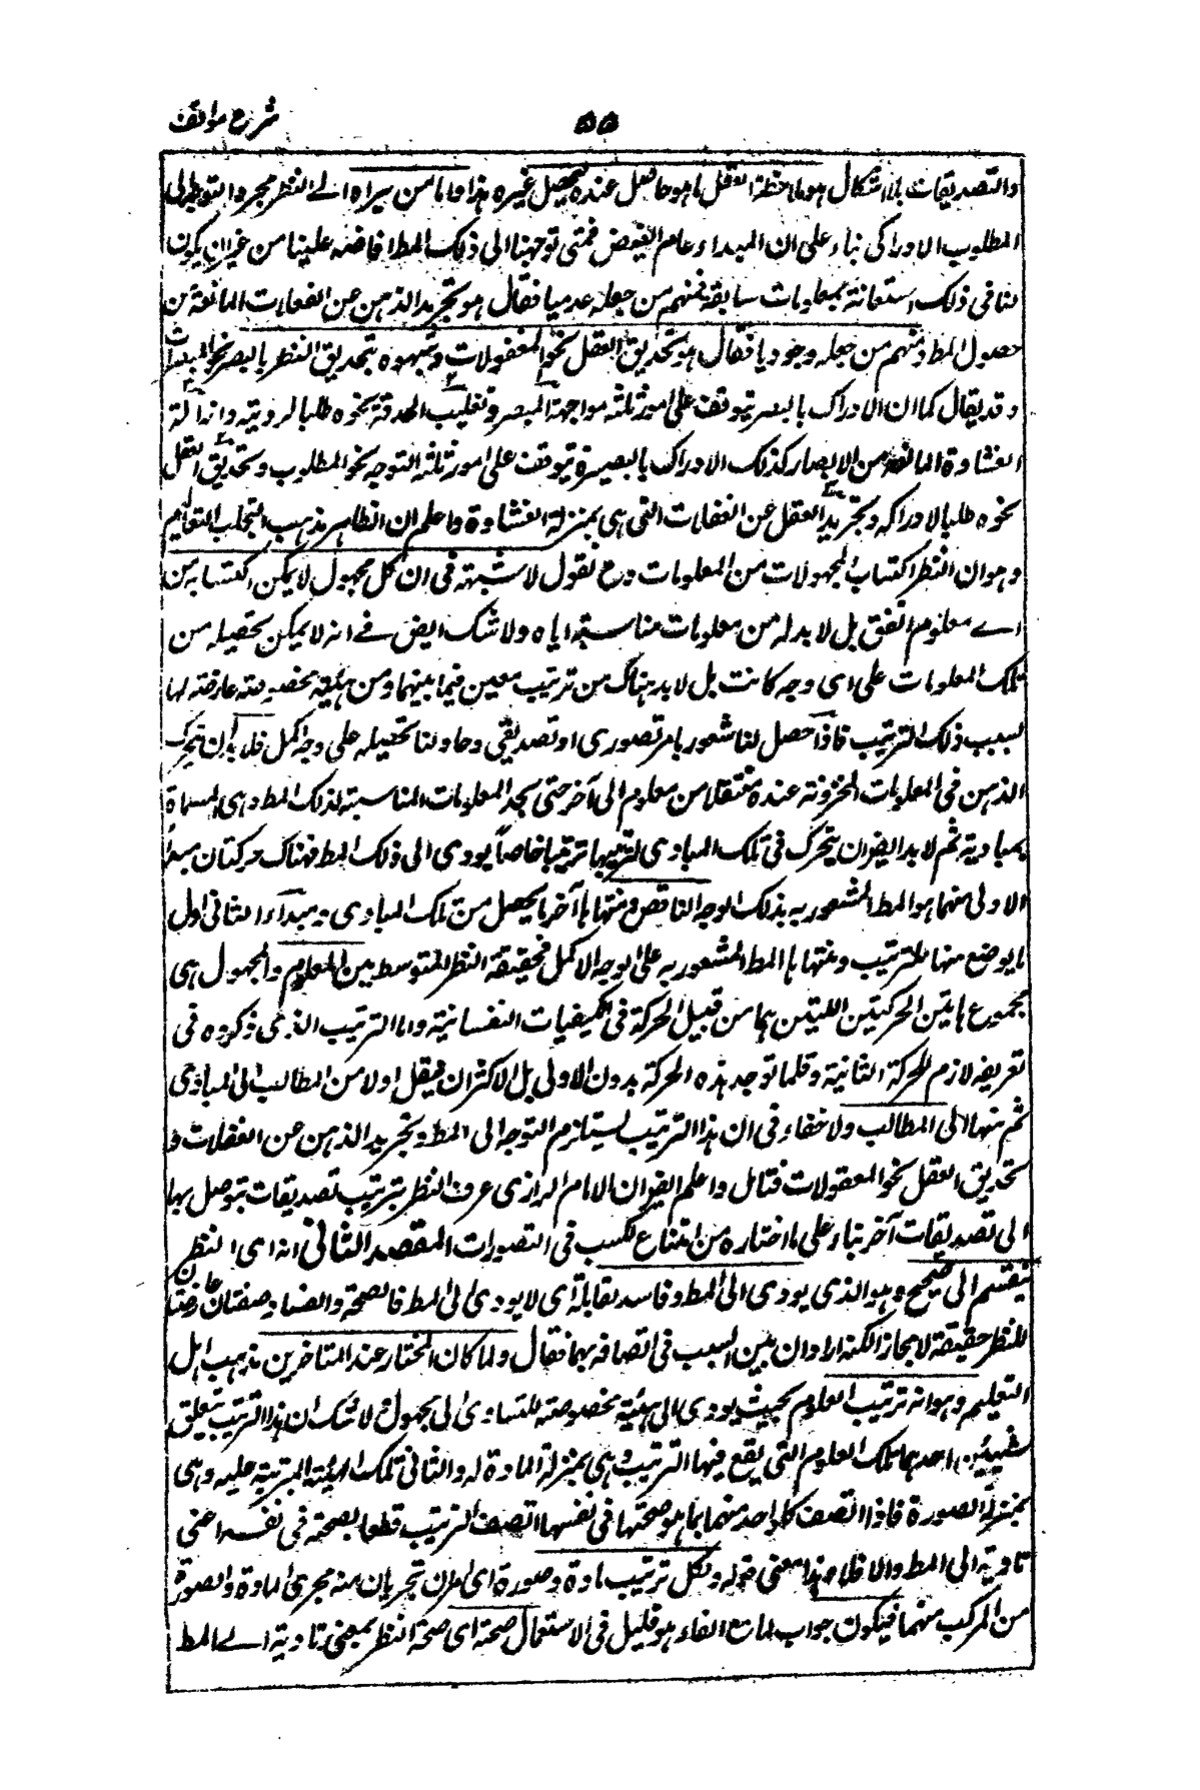 شرح مواقف
۵۵
والتصديقات بلا اشكال هو ملاحظة العقل ما هو حاصل عنده لتحصيل غيره هذا واما من يراه اے النظر مجرد التوجه الى
المطلوب الادراكى بناء على ان المبداء عام الفيض فمتى توجهنا الى ذلك المط افاضه علينا من غير ان يكون
لنا فى ذلك استعانة بمعلومات سابقة فمنهم من جعله عدميا فقال هو تجريد الذهن عن الغفلات المانعة من
حصول المط ومنهم من جعله وجوديا فقال هو تحديق العقل نحو المعقولات وشبهوه بتحديق النظر بالبصر نحو المبصرات
وقد يقال كما ان الادراك بالبصر يتوقف على امور ثلثه مواجهة المبصر وتقليب الحدقة نحوه طلبا لرويته وازالة
الغشاوة المانعة من الابصار كذلك الادراك بالبصيرة يتوقف على امور ثلثه التوجه نحو المطلوب وتحديق العقل
نحوه طلبا لادراكه وتجريد العقل عن الغفلات التى هى بمنزلة الغشاوة واعلم ان الظاهر مذهب اصحاب التعاليم
وهو ان النظر اكتساب المجهولات من المعلومات وح نقول لا شبهة فى ان كل مجهول لا يمكن اكتسابه من
اے معلوم اتفق بل لا بد له من معلومات مناسبة اياه ولا شك ايض فے انه لا يمكن تحصيله من
تلك المعلومات على اى وجه كانت بل لا بد هناك من ترتيب معين فيما بينهما ومن هيئة مخصوصة عارضة لها
بسبب ذلك الترتيب فاذا حصل لنا شعور بامر تصورى او تصديقى وحاولنا تحصيله على وجه اكمل فلا بد ان يتحرك
الذهن فى المعلومات المخزونة عنده منتقلا من معلوم الى آخر حتى يجد المعلومات المناسبة لذلك المط وهى المسماة
بمباديه ثم لا بد ايض ان يتحرك فى تلك المبادى لترتيبها ترتيبا خاصاً يودى الى ذلك المط فهناك حركتان مبدأ
الاولى منهما هو المط المشعور به بذلك الوجه الناقص ومنتهاها آخر ما يحصل من تلك المبادى ومبداء الثانى اول
ما يوضع منها للترتيب ومنتهاها المط المشعور به على الوجه الاكمل فحقيقة النظر المتوسط بين المعلوم والمجهول هى
مجموع هاتين الحركتين اللتين هما من قبيل الحركة فى الكيفيات النفسانية واما الترتيب الذى ذكروه فى
تعريفه لازم للحركة الثانية وقلما توجد هذه الحركة بدون الاولى بل الاكثر ان ينتقل اولا من المطالب الى المبادى
ثم منها الى المطالب ولا خفاء فى ان هذا الترتيب يستلزم التوجه الى المط وتجريد الذهن عن الغفلات و
تحديق العقل نحو المعقولات فتامل واعلم ايض ان الامام الرازى عرف النظر بترتيب تصديقات يتوصل بها
الى تصديقات آخر بناء على ما اختاره من امتناع الكسب فى التصورات المقصد الثانى انه اى النظر
ينقسم الى صحيح وهو الذى يودى الى المط وفاسد يقابله اى لا يودى الى المط فالصحة والفساد صفتان عارضتان
للنظر حقيقة لا مجازا لكنه اراد ان يبين السبب فى اتصافه بهما فقال ولما كان المختار عند المتاخرين مذهب اهل
التعليم وهو انه ترتيب العلوم بحيث يودى الى هيئة مخصوصة للتادى الى مجهول ولا شك ان هذا الترتيب يتعلق
بشيئين احدهما تلك العلوم التى يقع فيها الترتيب وهى بمنزلة المادة له والثانى تلك الهيئة المترتبة عليه وهى
بمنزلة الصورة فاذا اتصف كل واحد منهما بما هو صحتها فى نفسها اتصف الترتيب قطعا بصحته فى نفسه اعنى
تاديته الى المط والا فلا وهذا معنى قوله ولكل ترتيب مادة وصورة اى امران تجريان منه مجرى المادة والصورة
من المركب منهما فيكون جواب لما مع الفاء وهو قليل فى الاستعمال صحته اى صحة النظر بمعنى تاديته اے المط